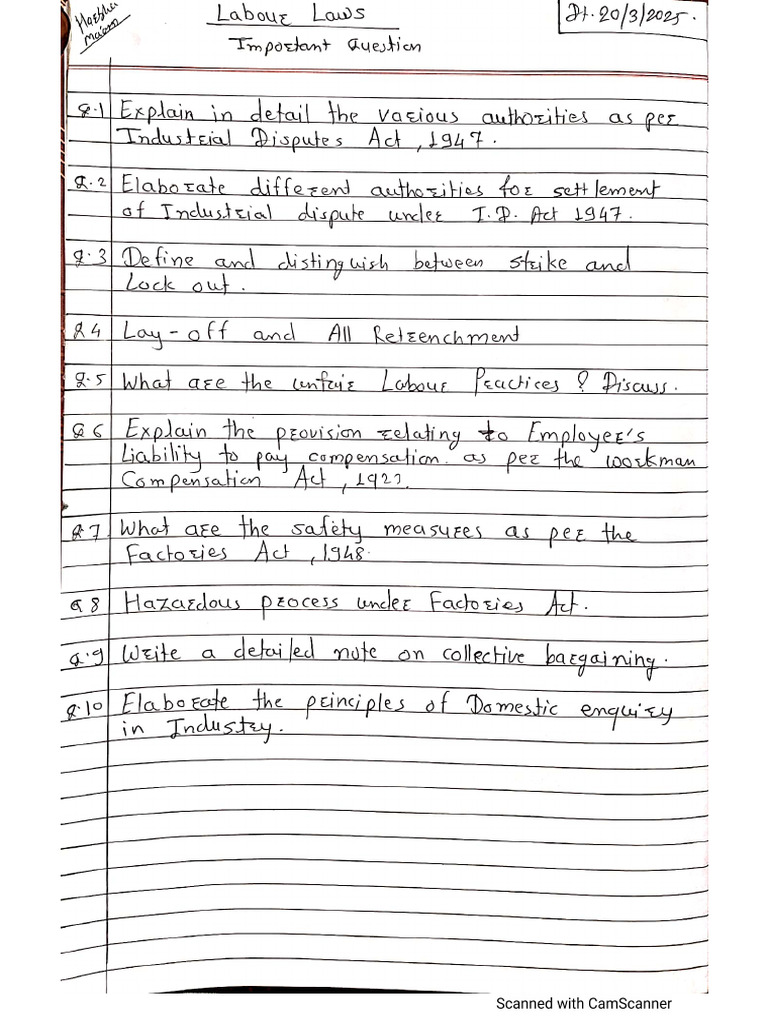 Labour Laws
Dt. 20/3/2025.
Important Question
Q.1 Explain in detail the various authorities as per
Industrial Disputes Act, 1947.
Q.2 Elaborate different authorities for settlement
of Industrial dispute under I.D. Act 1947.
Q.3 Define and distinguish between strike and
Lock out.
Q4 Lay-off and All Retrenchment
Q.5 What are the unfair Labour Practices ? Discuss.
Q6 Explain the provision relating to Employer's
Liability to pay compensation. as per the workman
Compensation Act,
Q7 What are the safety measures as per the
Factories Act, 1948.
Q8 Hazardous process under Factories Act.
Q.9 Write a detailed note on collective bargaining.
Q.10 Elaborate the principles of Domestic enquiry
in Industry.
Scanned with CamScanner